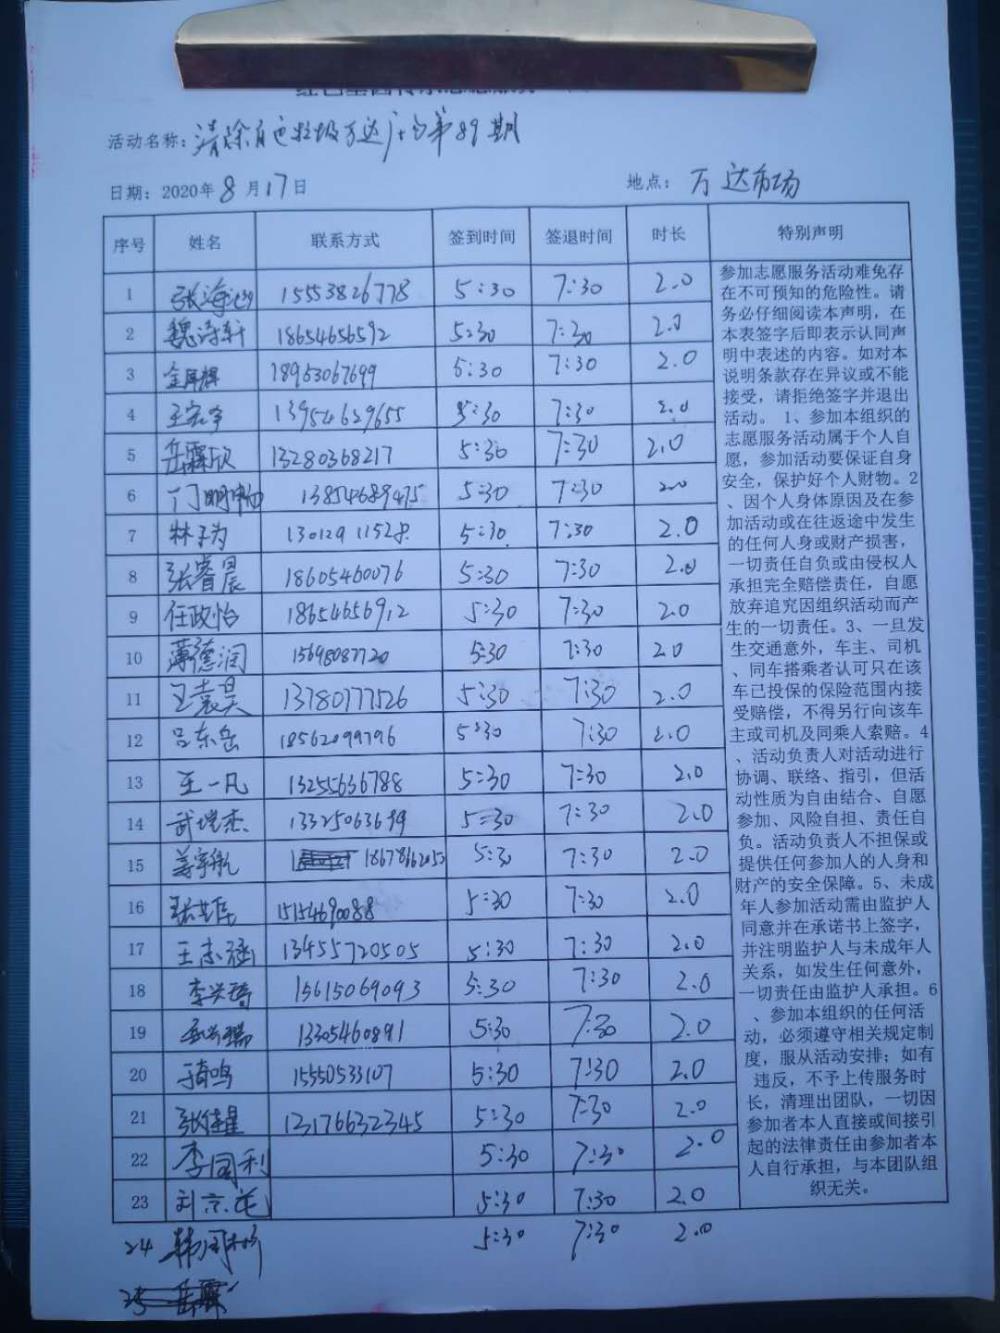 活动名称：清除白色垃圾万达广场第89期
日期：2020年8月17日 地点：万达市场
序号 姓名 联系方式 签到时间 签退时间 时长 特别声明
1 张海 15553826778 5:30 7:30 2.0
2 魏诗轩 18654656592 5:30 7:30 2.0
3 18953067699 5:30 7:30 2.0
4 王宏宇 13954629655 5:30 7:30 2.0
5 岳霖欣 13280368217 5:30 7:30 2.0
6 门明坤 13854689475 5:30 7:30 2.0
7 林子为 13012911528 5:30 7:30 2.0
8 张睿晨 18605460076 5:30 7:30 2.0
9 任政怡 18654656912 5:30 7:30 2.0
10 薄德润 15698087720 5:30 7:30 2.0
11 王袁昊 13780777526 5:30 7:30 2.0
12 吕东岳 18562099796 5:30 7:30 2.0
13 王一凡 13255636788 5:30 7:30 2.0
14 武 杰 13325063699 5:30 7:30 2.0
15 姜宇航 5:30 7:30 2.0
16 张 15154690088 5:30 7:30 2.0
17 王志涵 13455720505 5:30 7:30 2.0
18 李 15615069093 5:30 7:30 2.0
19 瑞 13305460891 5:30 7:30 2.0
20 于鸣 15550533107 5:30 7:30 2.0
21 张 星 13176632345 5:30 7:30 2.0
22 李国利 5:30 7:30 2.0
23 刘京 5:30 7:30 2.0
24 韩 5:30 7:30 2.0
25
参加志愿服务活动难免存
在不可预知的危险性。请
务必仔细阅读本声明，在
本表签字后即表示认同声
明中表述的内容。如对本
说明条款存在异议或不能
接受，请拒绝签字并退出
活动。 1、参加本组织的
志愿服务活动属于个人自
愿，参加活动要保证自身
安全，保护好个人财物。2
、因个人身体原因及在参
加活动或在往返途中发生
的任何人身或财产损害，
一切责任自负或由侵权人
承担完全赔偿责任，自愿
放弃追究因组织活动而产
生的一切责任。3、一旦发
生交通意外，车主、司机
、同车搭乘者认可只在该
车已投保的保险范围内接
受赔偿，不得另行向该车
主或司机及同乘人索赔。4
、活动负责人对活动进行
协调、联络、指引，但活
动性质为自由结合、自愿
参加、风险自担、责任自
负。活动负责人不担保或
提供任何参加人的人身和
财产的安全保障。5、未成
年人参加活动需由监护人
同意并在承诺书上签字，
并注明监护人与未成年人
关系，如发生任何意外，
一切责任由监护人承担。6
、参加本组织的任何活
动，必须遵守相关规定制
度，服从活动安排；如有
违反，不予上传服务时
长，清理出团队，一切因
参加者本人直接或间接引
起的法律责任由参加者本
人自行承担，与本团队组
织无关。